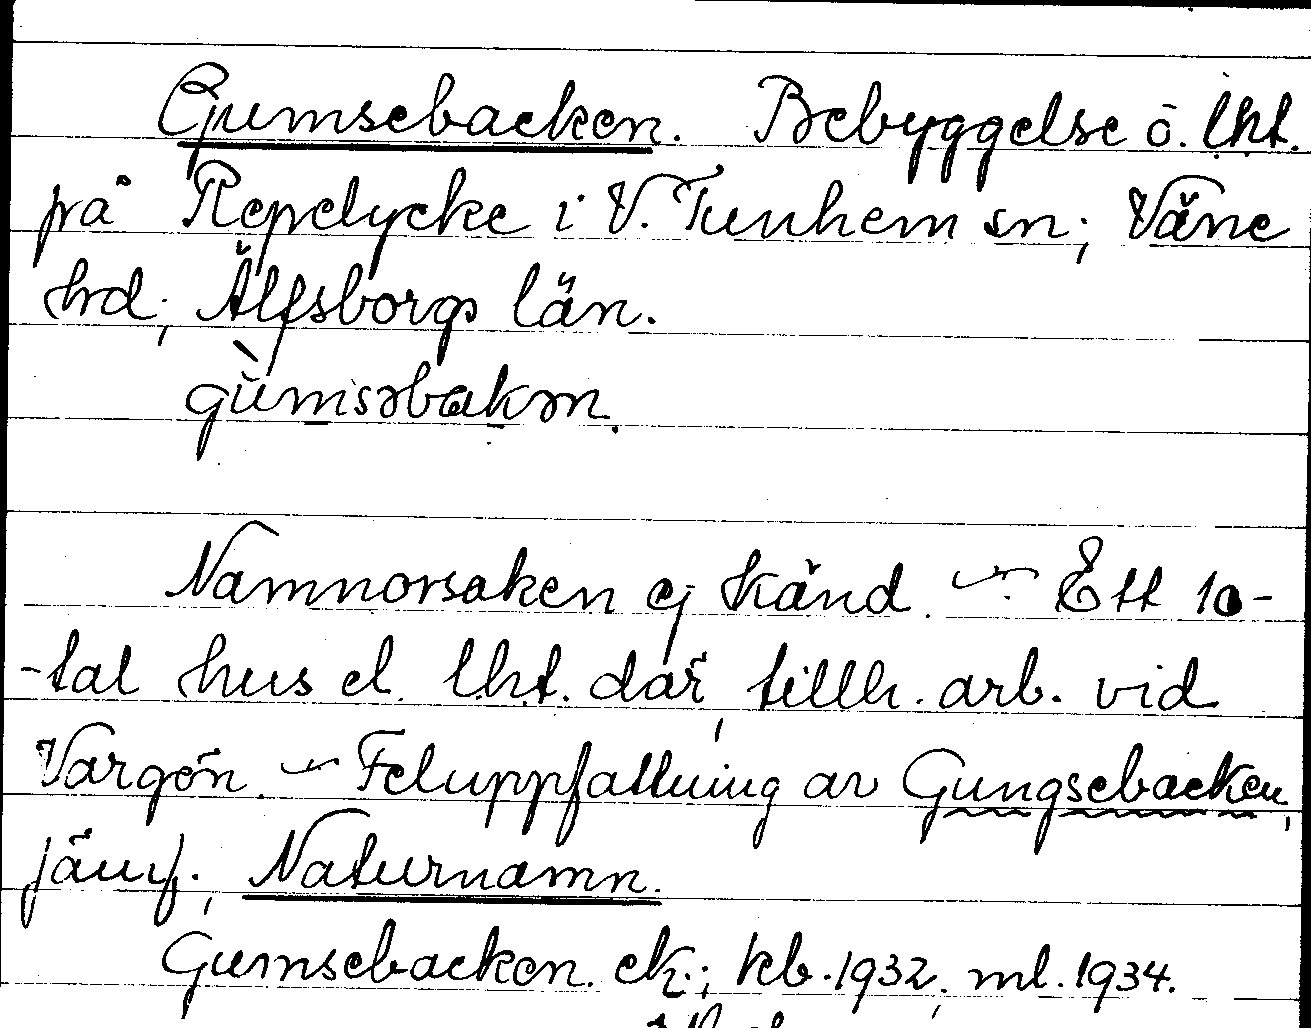 Gumsebacken. Bebyggelse o. lht.
på Repelycke i V. Tunhem sn; Väne
hd; Älfsborgs län.
gùmsəbakən.
Namnorsaken ej känd. – Ett 10-
-tal hus el. lht. där, tillh. arb. vid
Vargön. – Feluppfattning av Gungsebacken,
jämf.; Naturnamn.
Gumsebacken. ek.; kb. 1932, ml. 1934.